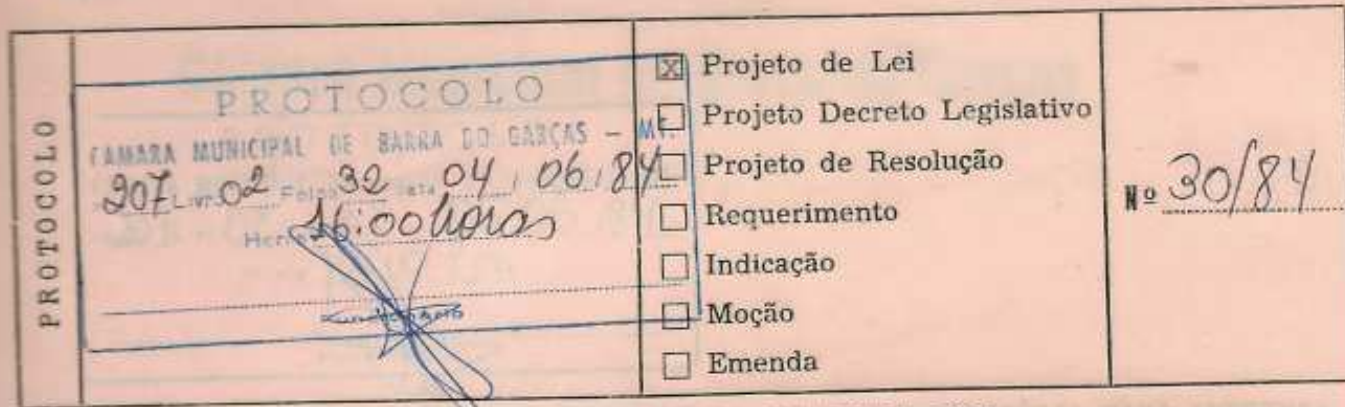 PROTOCOLO
PROTOCOLO
CAMARA MUNICIPAL DE BARRA DO GARÇAS - MT.
207 Livro 02 Folha 32 Data 04 / 06 / 84
Horas 16:00 horas
X Projeto de Lei
Projeto Decreto Legislativo
Projeto de Resolução
Requerimento
Indicação
Moção
Emenda
Nº 30/84